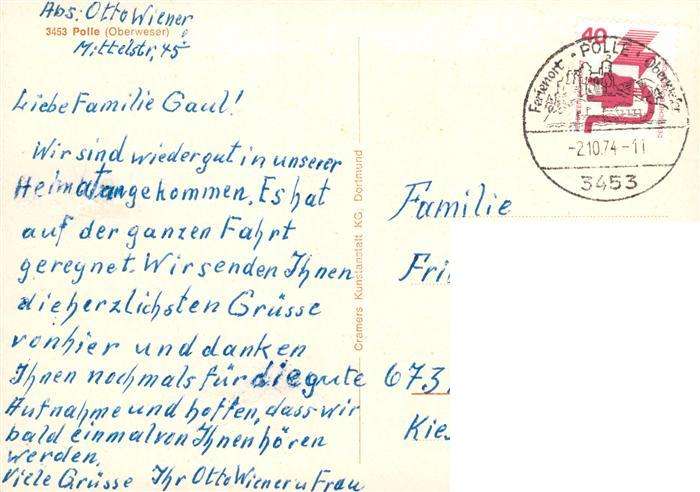 Abs: Otto Wiener
3453 Polle (Oberweser)
Mittelstr. 45
Liebe Familie Gaul!
Wir sind wieder gut in unserer
Heimat angekommen. Es hat
auf der ganzen Fahrt
geregnet. Wir senden Ihnen
die herzlichsten Grüsse
von hier und danken
Ihnen nochmals für die gute
Aufnahme und hoffen, dass wir
bald einmal von Ihnen hören
werden.
Viele Grüsse Ihr Otto Wiener u Frau
Cramers Kunstanstalt KG. Dortmund
40
Ferienort · POLLE · Oberweser
-2.10.74-11
3453
Familie
Fri
673
Kies